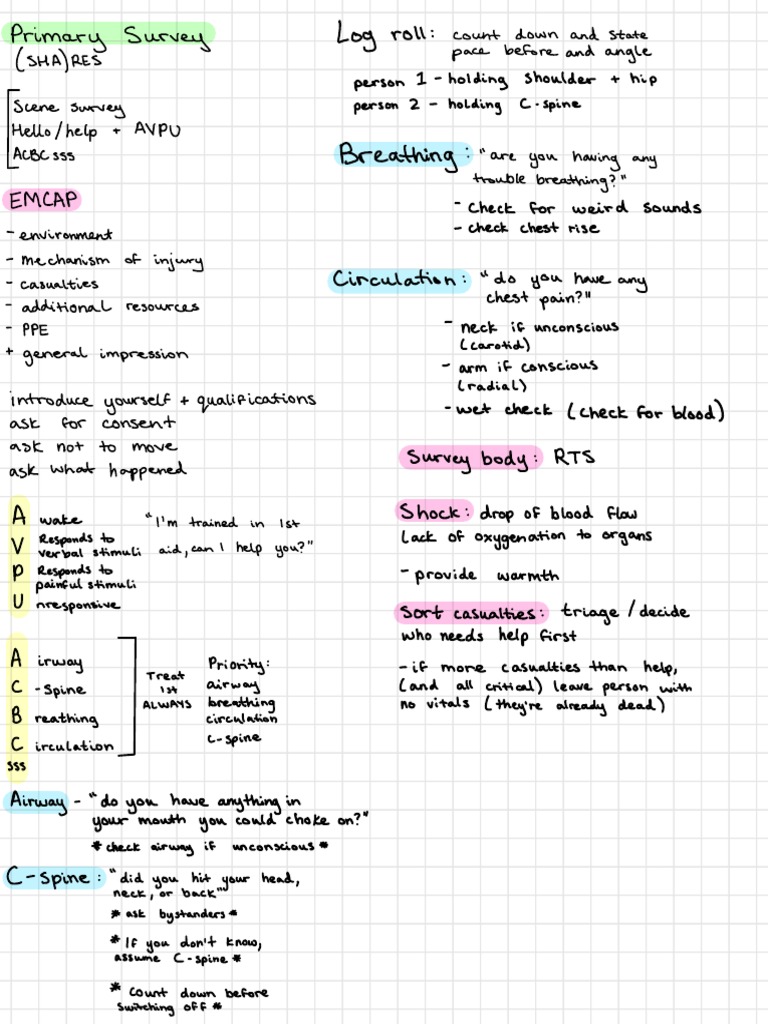 Primary Survey
(SHA)RES
Scene survey
Hello/help + AVPU
ACBC sss
EMCAP
- environment
- mechanism of injury
- casualties
- additional resources
- PPE
+ general impression
introduce yourself + qualifications
ask for consent
ask not to move
ask what happened
A wake
V Responds to verbal stimuli
P Responds to painful stimuli
U nresponsive
"I'm trained in 1st
aid, can I help you?"
A irway
C -Spine
B reathing
C irculation
sss
Treat
1st
ALWAYS
Priority:
airway
breathing
circulation
c-spine
Airway - "do you have anything in
your mouth you could choke on?"
* check airway if unconscious *
C-spine: "did you hit your head,
neck, or back"
* ask bystanders *
* If you don't know,
assume C-spine *
* count down before
switching off *
Log roll: count down and state
pace before and angle
person 1 - holding shoulder + hip
person 2 - holding C-spine
Breathing: "are you having any
trouble breathing?"
- check for weird sounds
- check chest rise
Circulation: "do you have any
chest pain?"
- neck if unconscious
(carotid)
- arm if conscious
(radial)
- wet check (check for blood)
Survey body: RTS
Shock: drop of blood flow
Lack of oxygenation to organs
- provide warmth
Sort casualties: triage / decide
who needs help first
- if more casualties than help,
(and all critical) leave person with
no vitals (they're already dead)